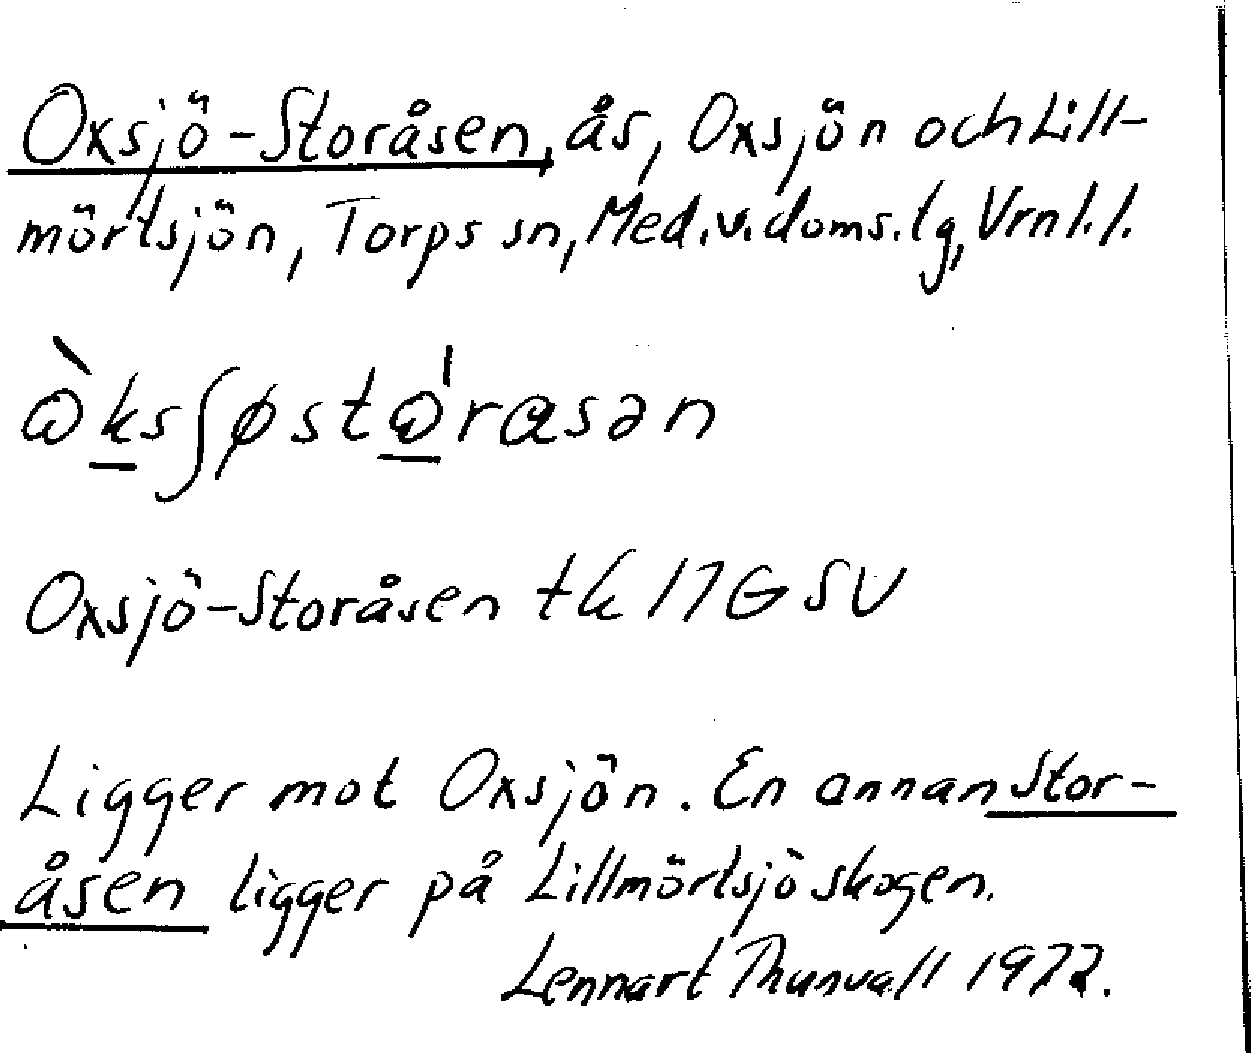 Oxsjö-Storåsen, ås, Oxsjön och Lill-
mörtsjön, Torps sn, Med.v.doms.lg, Vrnl.l.
ὼksʃøstω'rɑsən
Oxsjö-Storåsen tk 17G SV
Ligger mot Oxsjön. En annan Stor-
åsen ligger på Lillmörtsjöskogen.
Lennart Thunvall 1972.